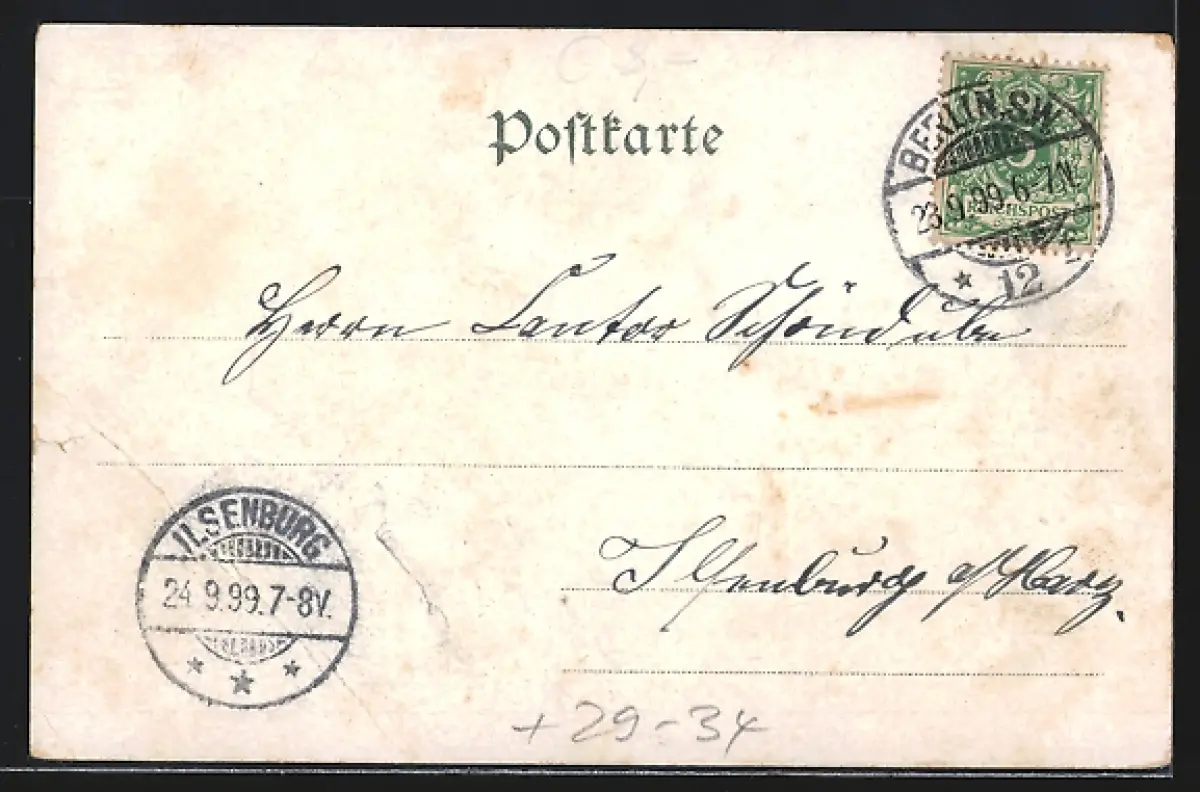 C 3,-
Postkarte
BERLIN, SW
23.9.99.6-7N.
* 12
REICHSPOST
Herrn Cantor Schöndube
ILSENBURG
24.9.99.7-8V.
Ilsenburg a/Harz.
+29-34